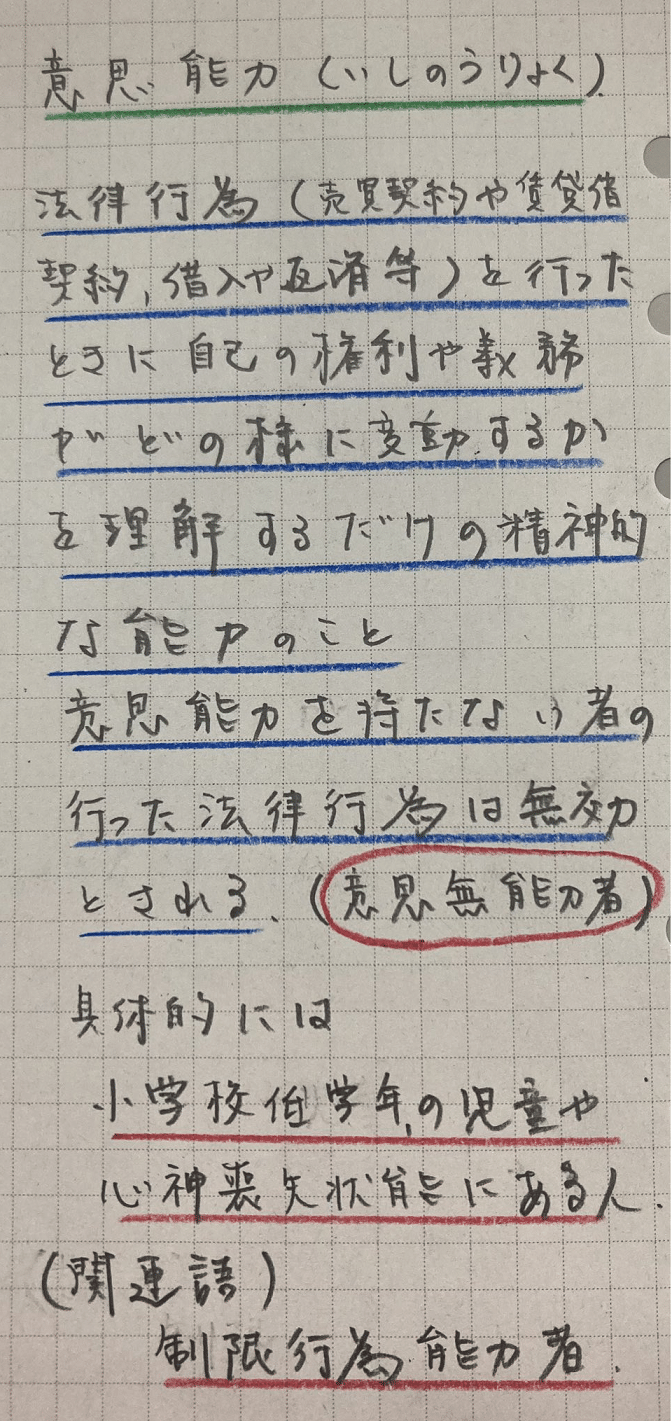 意思能力（いしのうりょく）
法律行為（売買契約や賃貸借
契約,借入や返済等）を行った
ときに自己の権利や義務
がどの様に変動するか
を理解するだけの精神的
な能力のこと
意思能力を持たない者の
行った法律行為は無効
とされる.（意思無能力者）
具体的には
小学校低学年の児童や
心神喪失状能にある人.
（関連語）
制限行為能力者.